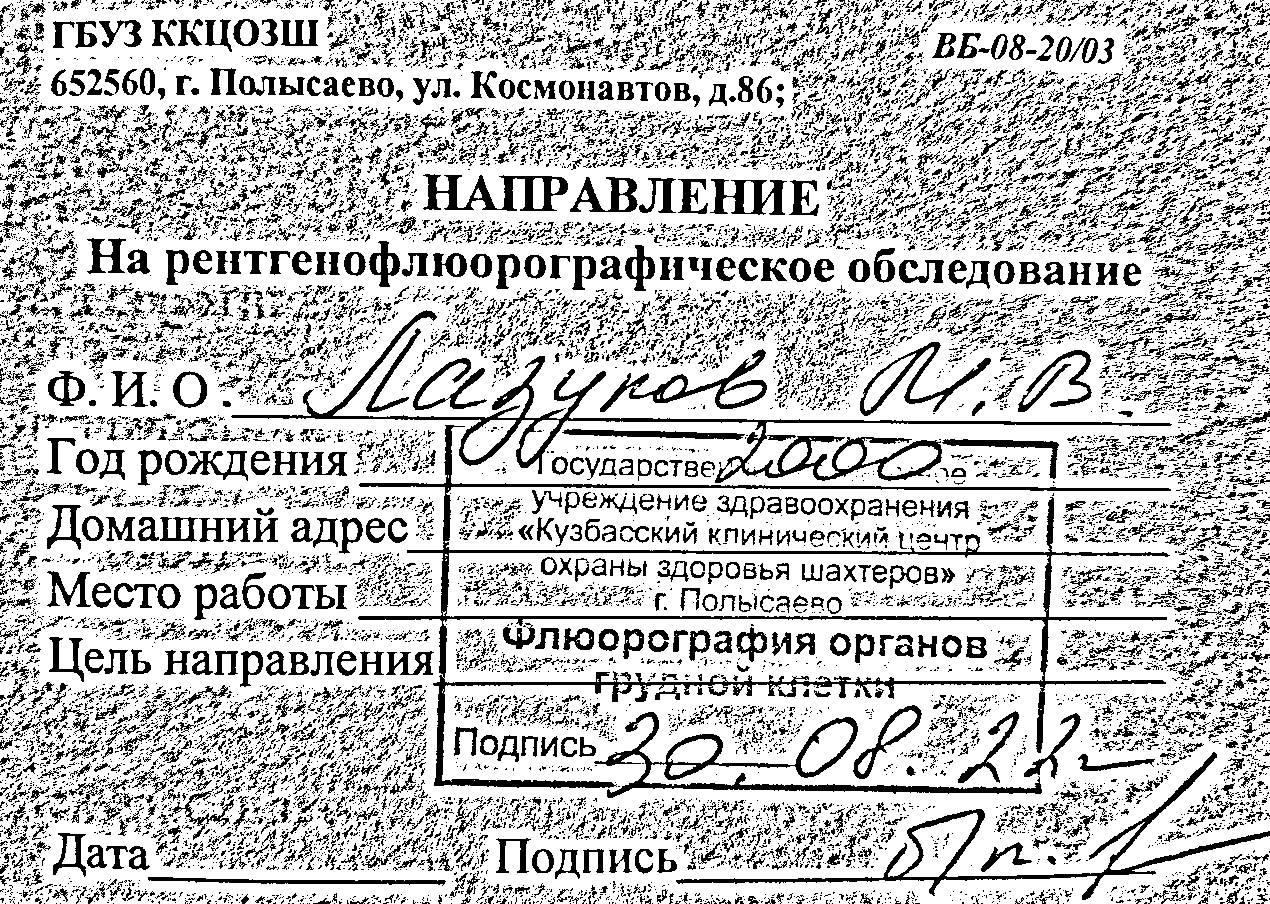 ГБУЗ ККЦОЗШ
ВБ-08-20/03
652560, г. Полысаево, ул. Космонавтов, д.86;
НАПРАВЛЕНИЕ
На рентгенофлюорографическое обследование
Ф. И. О. Лазуков И. В.
Год рождения 2000
Домашний адрес
Место работы
Цель направления
Государствен
учреждение здравоохранения
«Кузбасский клинический центр
охраны здоровья шахтеров»
г. Полысаево
Флюорография органов
грудной клетки
Подпись 30.08.22г
Дата Подпись